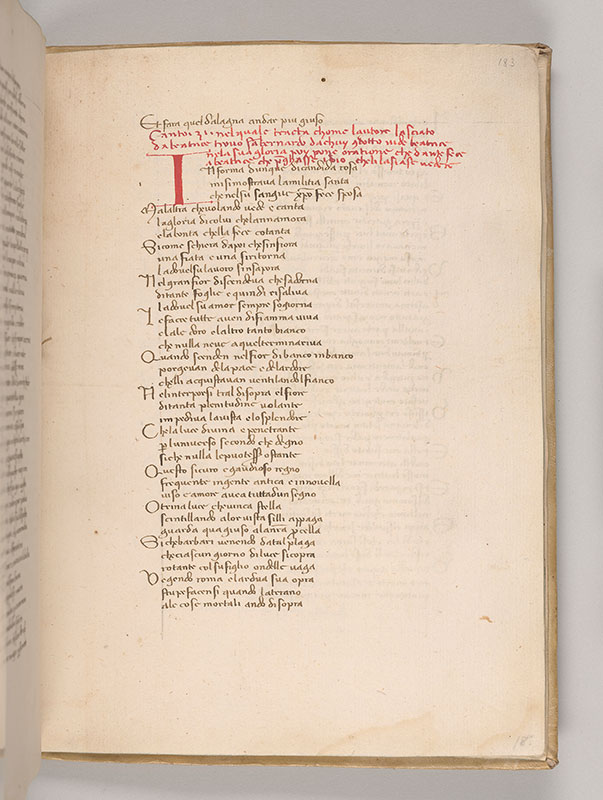 183
Et fara quel dalagna andar piu giuso
Canto. 31. nel quale tracta chome lautore lasciato
da beatrice trovo san bernardo da chuy 9dotto vide beatrice
nela sua gloria poy pone oratione che dante fece
a beatrice che p̱gasse idio che li lasiase vedere
In forma dunque di candida rosa
misi mostrava la militia santa
che nel su sangue xp̄o fece sposa
Ma laltra che volando vede e canta
la gloria di colui che lannamora
e la bonta chella fece cotanta
Si come schiera dapoi che sinfiora
una fiata e una siritorna
la dove su lavoro sinsapora
Nel gran fior discendeva che sadorna
di tante foglie e quindi risaliva
la dovel su amor sempre sogiorna
Le facce tutte aven di fiamma viva
e lale doro e laltro tanto bianco
che nulla neve a quel terminariva
Quando scenden nel fior di banco in banco
porgevan de la pace e de lardore
chelli acquistavan ventilandol fianco
Nel interporsi tral disopra el fiore
di tanta plenitudine volante
inpediva la vista e lo splendore
Che la luce divina e penetrante
p̱ luniverso secondo che degno
si che nulla le puote esser ostante
Questo sicuro e gaudioso regno
frequente ingente antica e innovella
viso e amore avea tutta dun segno
O trina luce che unica stella
scintillando a lor vista silli appaga
guarda qua giuso a la nra p̱cella
Si che barbari venendo da tal plaga
che ciascun giorno di luce si copra
rotante col su figlio ondelle vaga
Vegendo roma e lardua sua opra
stupefacensi quando laterano
ale cose mortali ando di sopra